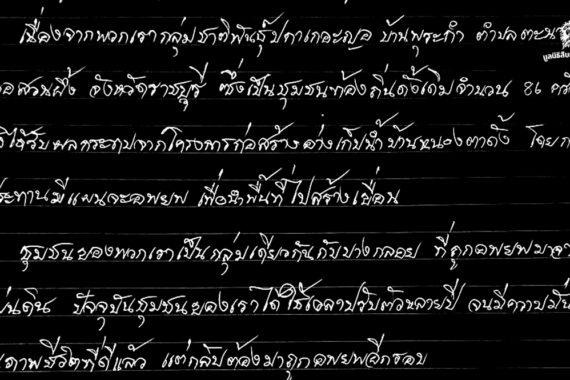 เนื่องจากพวกเรากลุ่มชาติพันธุ์ปกาเกอะญอ บ้านพุระกำ ตำบลตะนา
มูลนิธิสืบ
อสวนผึ้ง จังหวัดราชบุรี ซึ่งเป็นชุมชนท้องถิ่นดั้งเดิมจำนวน 86 ครั
ได้รับผลกระทบจากโครงการก่อสร้างอ่างเก็บน้ำบ้านหนองตาดั้ง โดยก
ประทานมีแผนจะอพยพ เพื่อนำพื้นที่ไปสร้างเขื่อน
ชุมชนของพวกเราเป็นกลุ่มเดียวกันกับบางกลอย ที่ถูกอพยพมาจา
ผ่นดิน ปัจจุบันชุมชนของเราได้ใช้เวลาปรับตัวหลายปี จนมีความมั่น
ภาพชีวิตที่ดีแล้ว แต่กลับต้องมาถูกอพยพอีกรอบ